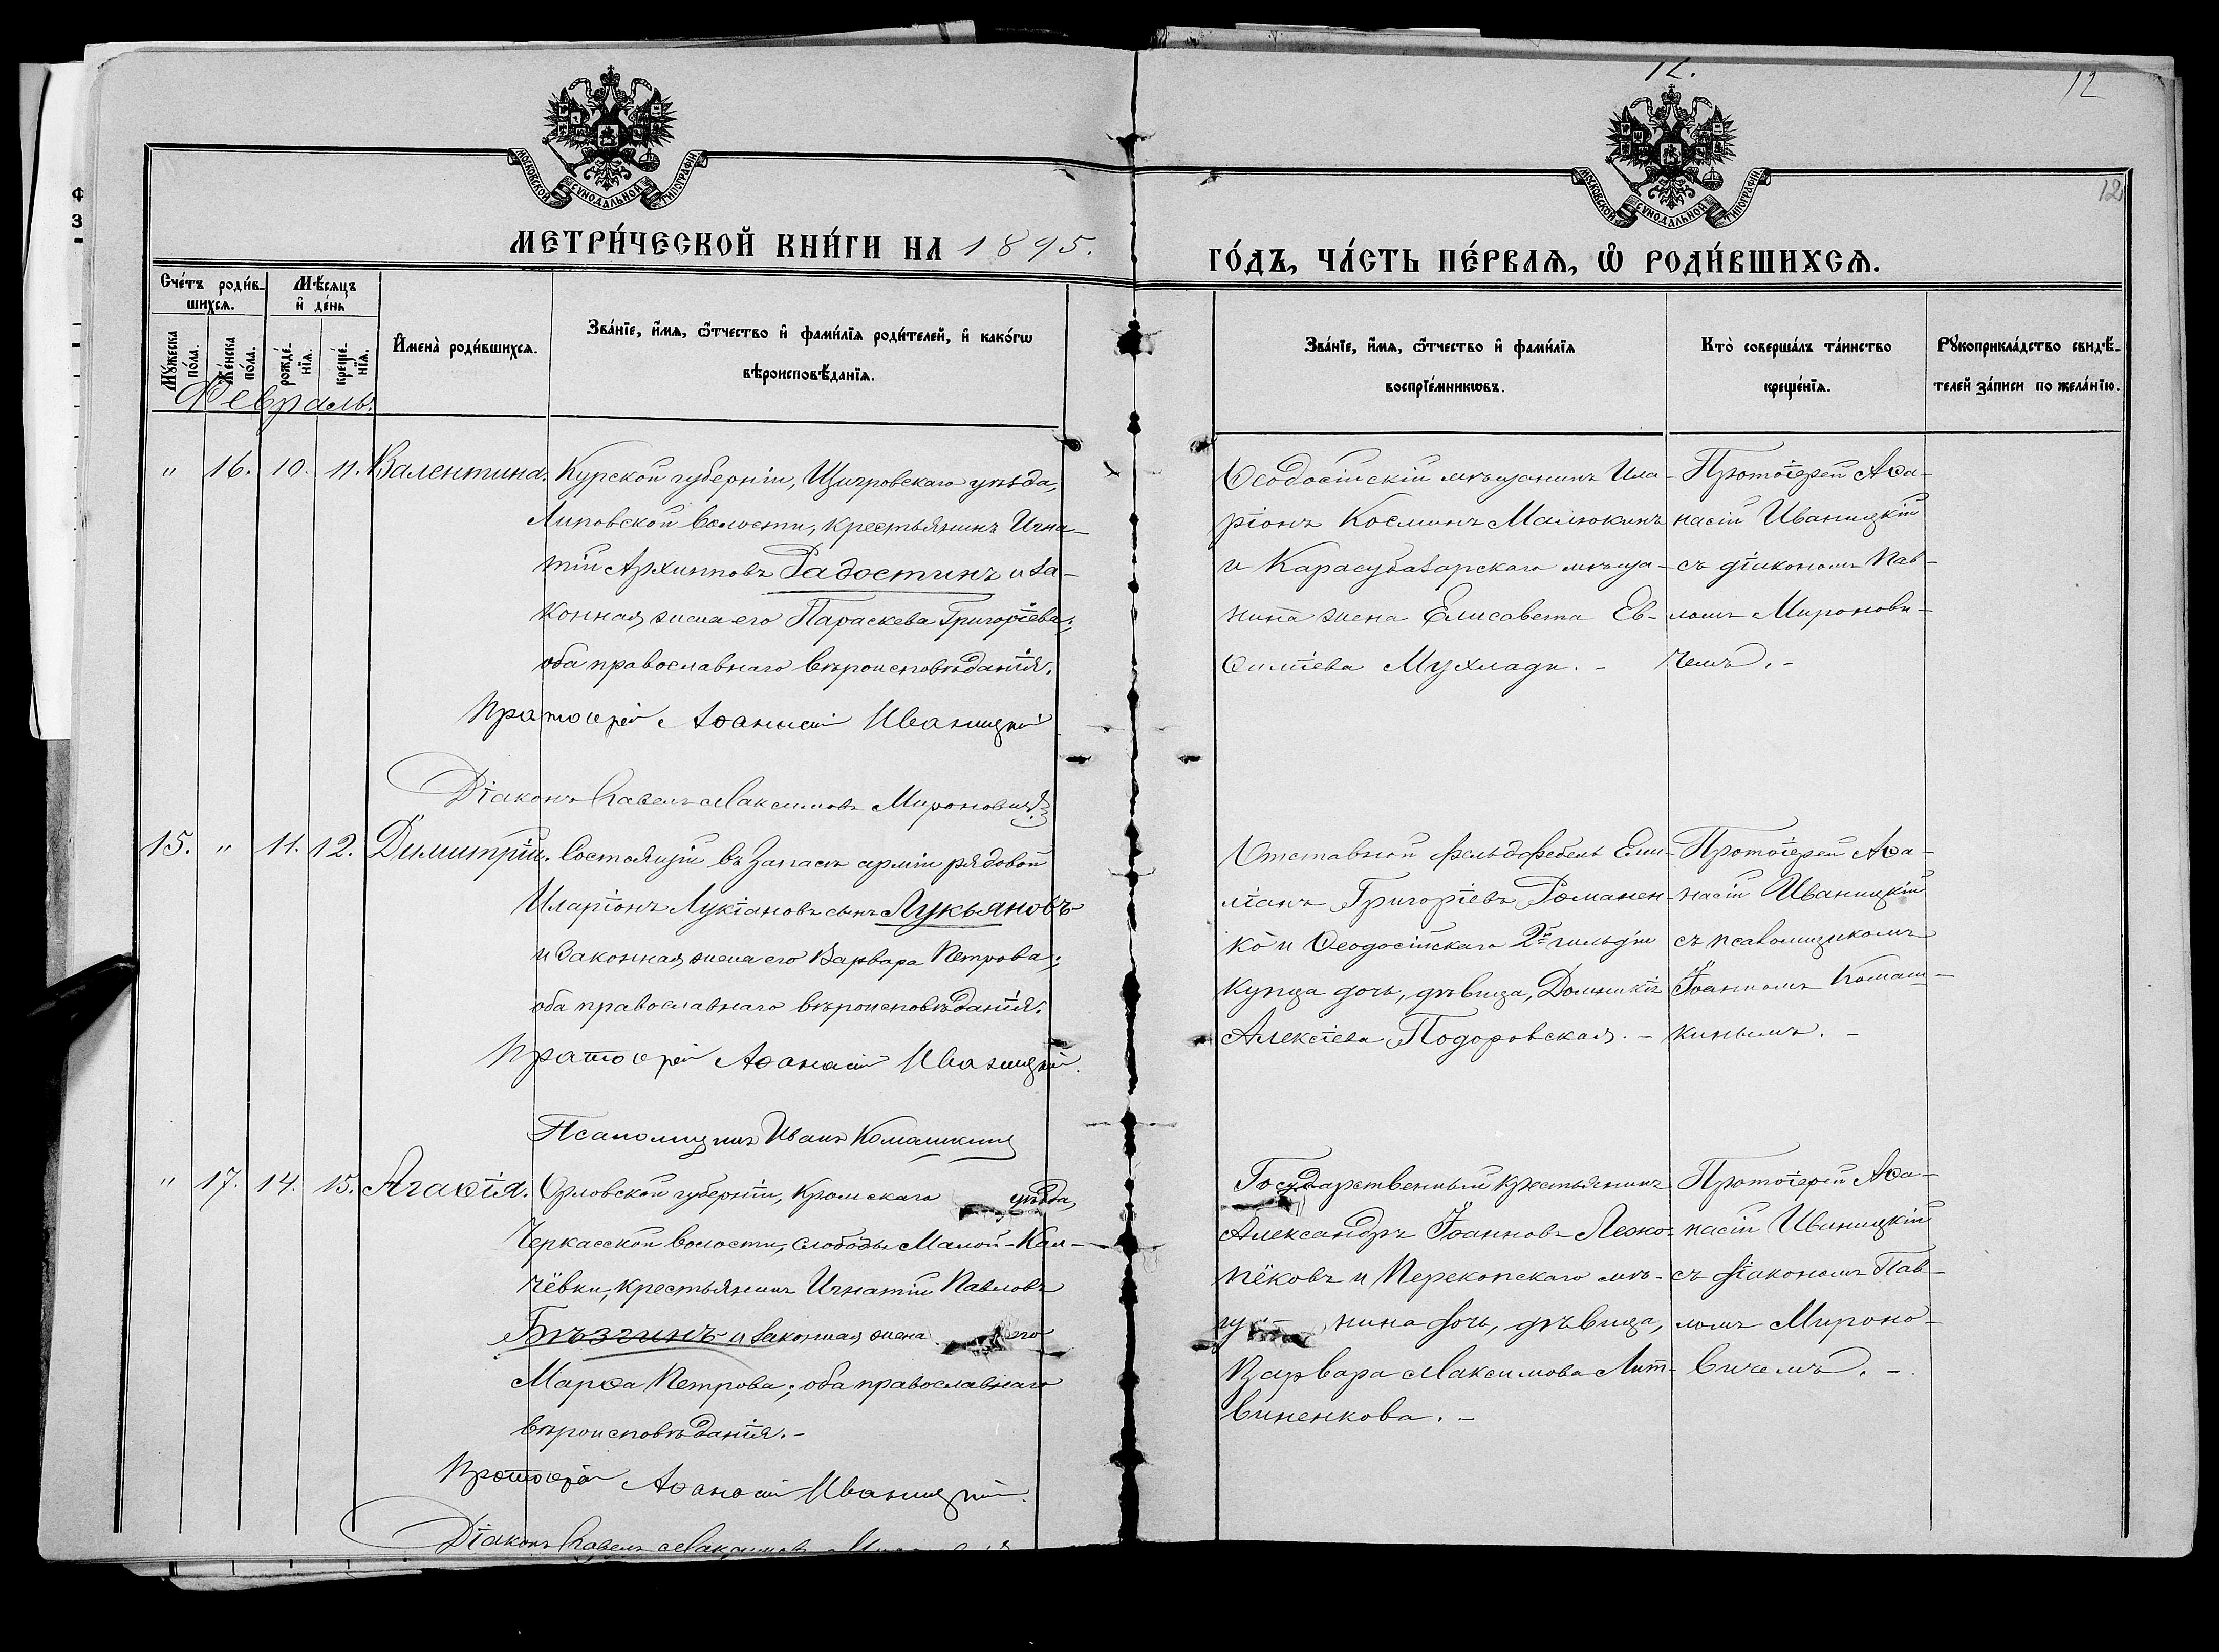 12.
12
12
МОСКОВСКОЙ СУНОДАЛЬНОЙ ТИПОГРАФІИ
МОСКОВСКОЙ СУНОДАЛЬНОЙ ТИПОГРАФІИ
МЕТРИ́ЧЕСКОЙ КНИ́ГИ НА 1895.
ГО́ДЪ, ЧА́СТЬ ПЕ́РВАѦ, Ѡ҆ РОДИ́ВШИХСѦ.
Сче́тъ роди́в-
шихсѧ.
Мѣ́сѧцъ
и҆ де́нь
Мꙋ́жеска
по́ла.
Же́нска
по́ла.
рожде́-
нїѧ.
креще́-
нїѧ.
И҆мена̀ роди́вшихсѧ.
Зва́нїе, и҆́мѧ, ѻ҆́тчество и҆ фами́лїѧ роди́телей, и҆ како́гѡ
вѣроисповѣ́данїѧ.
Зва́нїе, и҆́мѧ, ѻ҆́тчество и҆ фами́лїѧ
воспрїе́мникѡвъ.
Кто̀ соверша́лъ та́инство
креще́нїѧ.
Рꙋкоприкла́дство свидѣ́-
телей за́писи по жела́нїю.
Февраль.
" 16. 10. 11. Валентина. Курской губерніи, Щигровскаго уѣзда,
Липовской волости, крестьянинъ Игна-
тій Архиповъ Радостинъ и за-
конная жена его Параскева Григоріева;
оба православнаго вѣроисповѣданія.
Протоіерей Аѳанасій Иваницкій
Діаконъ Павелъ Максимовъ Мироновичъ
Ѳеодосійскій мѣщанинъ Ила-
ріонъ Косминъ Малюкинъ
и Карасубазарскаго мѣща-
нина жена Елисавета Ев-
ѳиміева Мухлади. -
Протоіерей Аѳа-
насій Иваницкій
съ діакономъ Пав-
ломъ Миронови-
чемъ. -
15. " 11. 12. Димитрій. Состоящій въ запасѣ арміи рядовой
Иларіонъ Лукіановъ сынъ Лукьяновъ
и законная жена его Варвара Петрова;
оба православнаго вѣроисповѣданія.
Протоіерей Аѳанасій Иваницкій.
Псаломщикъ Иванъ Комашкинъ
Отставной фельдфебель Еми-
ліанъ Григоріевъ Романен-
ко и Ѳеодосійскаго 2й гильдіи
купца дочь, дѣвица, Домникія
Алексіева Подоровская. -
Протоіерей Аѳа-
насій Иваницкій
съ псаломщикомъ
Іоанномъ Комаш-
кинымъ. -
" 17. 14. 15. Агаѳія. Орловской губерніи, Кромскаго уѣзда,
Черкасской волости, слободы Малой-Кал-
чёвки, крестьянинъ Игнатій Павловъ
Бѣзгинъ и законная жена его
Марѳа Петрова; оба православнаго
вѣроисповѣданія. -
Протоіерей Аѳанасій Иваницкій.
Діаконъ Павелъ Максимовъ
Государственный крестьянинъ
Александръ Іоанновъ Лежо-
пёковъ и Перекопскаго мѣ-
щанина дочь, дѣвица,
Варвара Максимова Лит-
виненкова. -
Протоіерей Аѳа-
насій Иваницкій
съ діакономъ Пав-
ломъ Мироно-
вичемъ. -